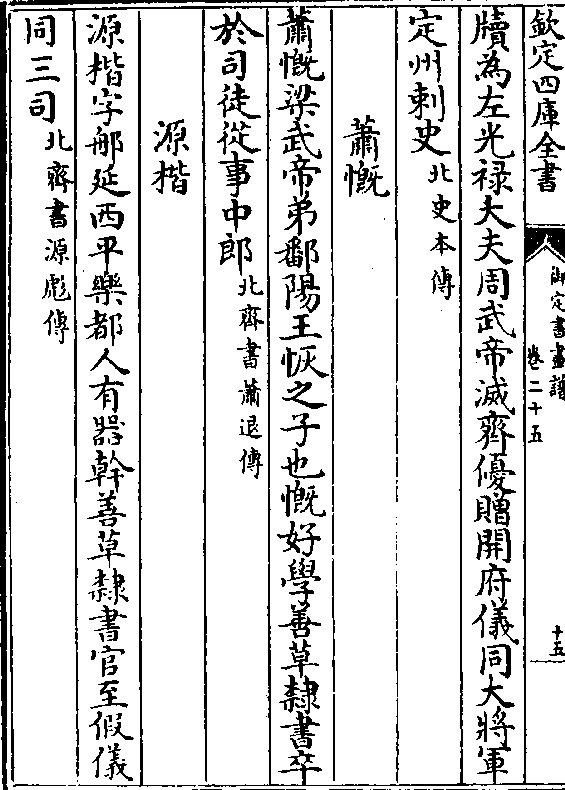 欽定四庫全書
御定書畫譜
卷二十五
十五
牘為左光禄大夫周武帝滅齊優贈開府儀同大將軍
定州刺史北史本傳
蕭慨
蕭慨梁武帝弟鄱陽王恢之子也慨好學善草隸書卒
於司徒從事中郎北齊書蕭退傳
源楷
源楷字郍延西平樂都人有器幹善草隸書官至假儀
同三司北齊書源彪傳